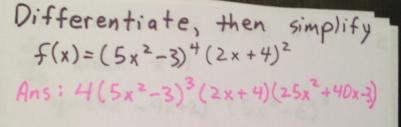 Differentiate, then simplify
f(x)=(5x²-3)⁴(2x+4)²
Ans: 4(5x²-3)³(2x+4)(25x²+40x-3)